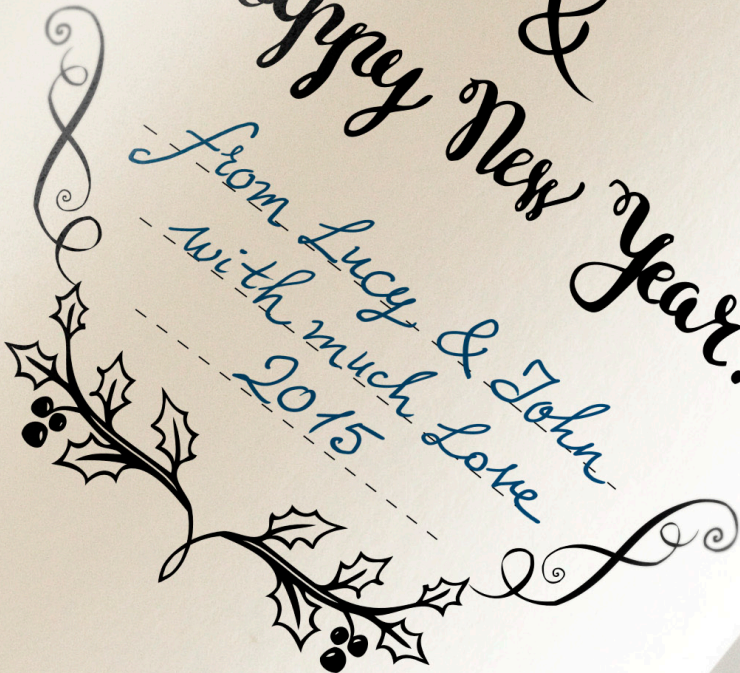 &
Happy New Year!
from Lucy & John
with much Love
2015